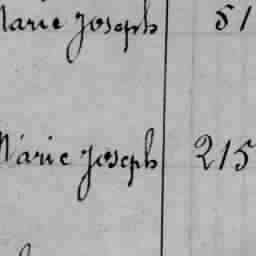 Marie Joseph 51
Marie Joseph 215